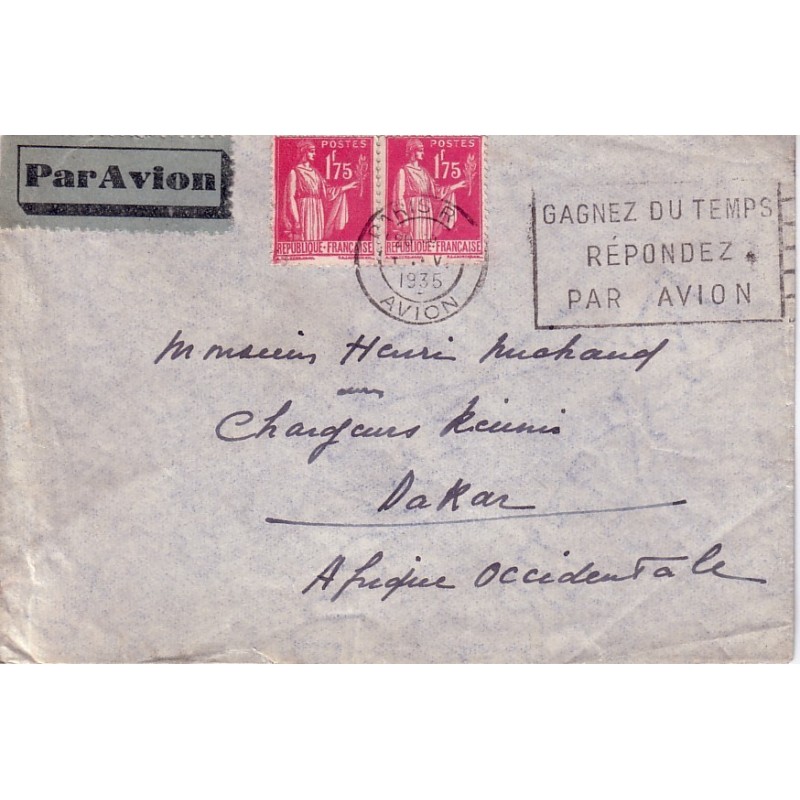 Par Avion
POSTES
1F75
RÉPUBLIQUE-FRANÇAISE
POSTES
1F75
RÉPUBLIQUE-FRANÇAISE
PARIS R.P.
1935
AVION
GAGNEZ DU TEMPS
RÉPONDEZ
PAR AVION
Monsieur Henri Michaud
aux
Chargeurs Réunis
Dakar
Afrique Occidentale